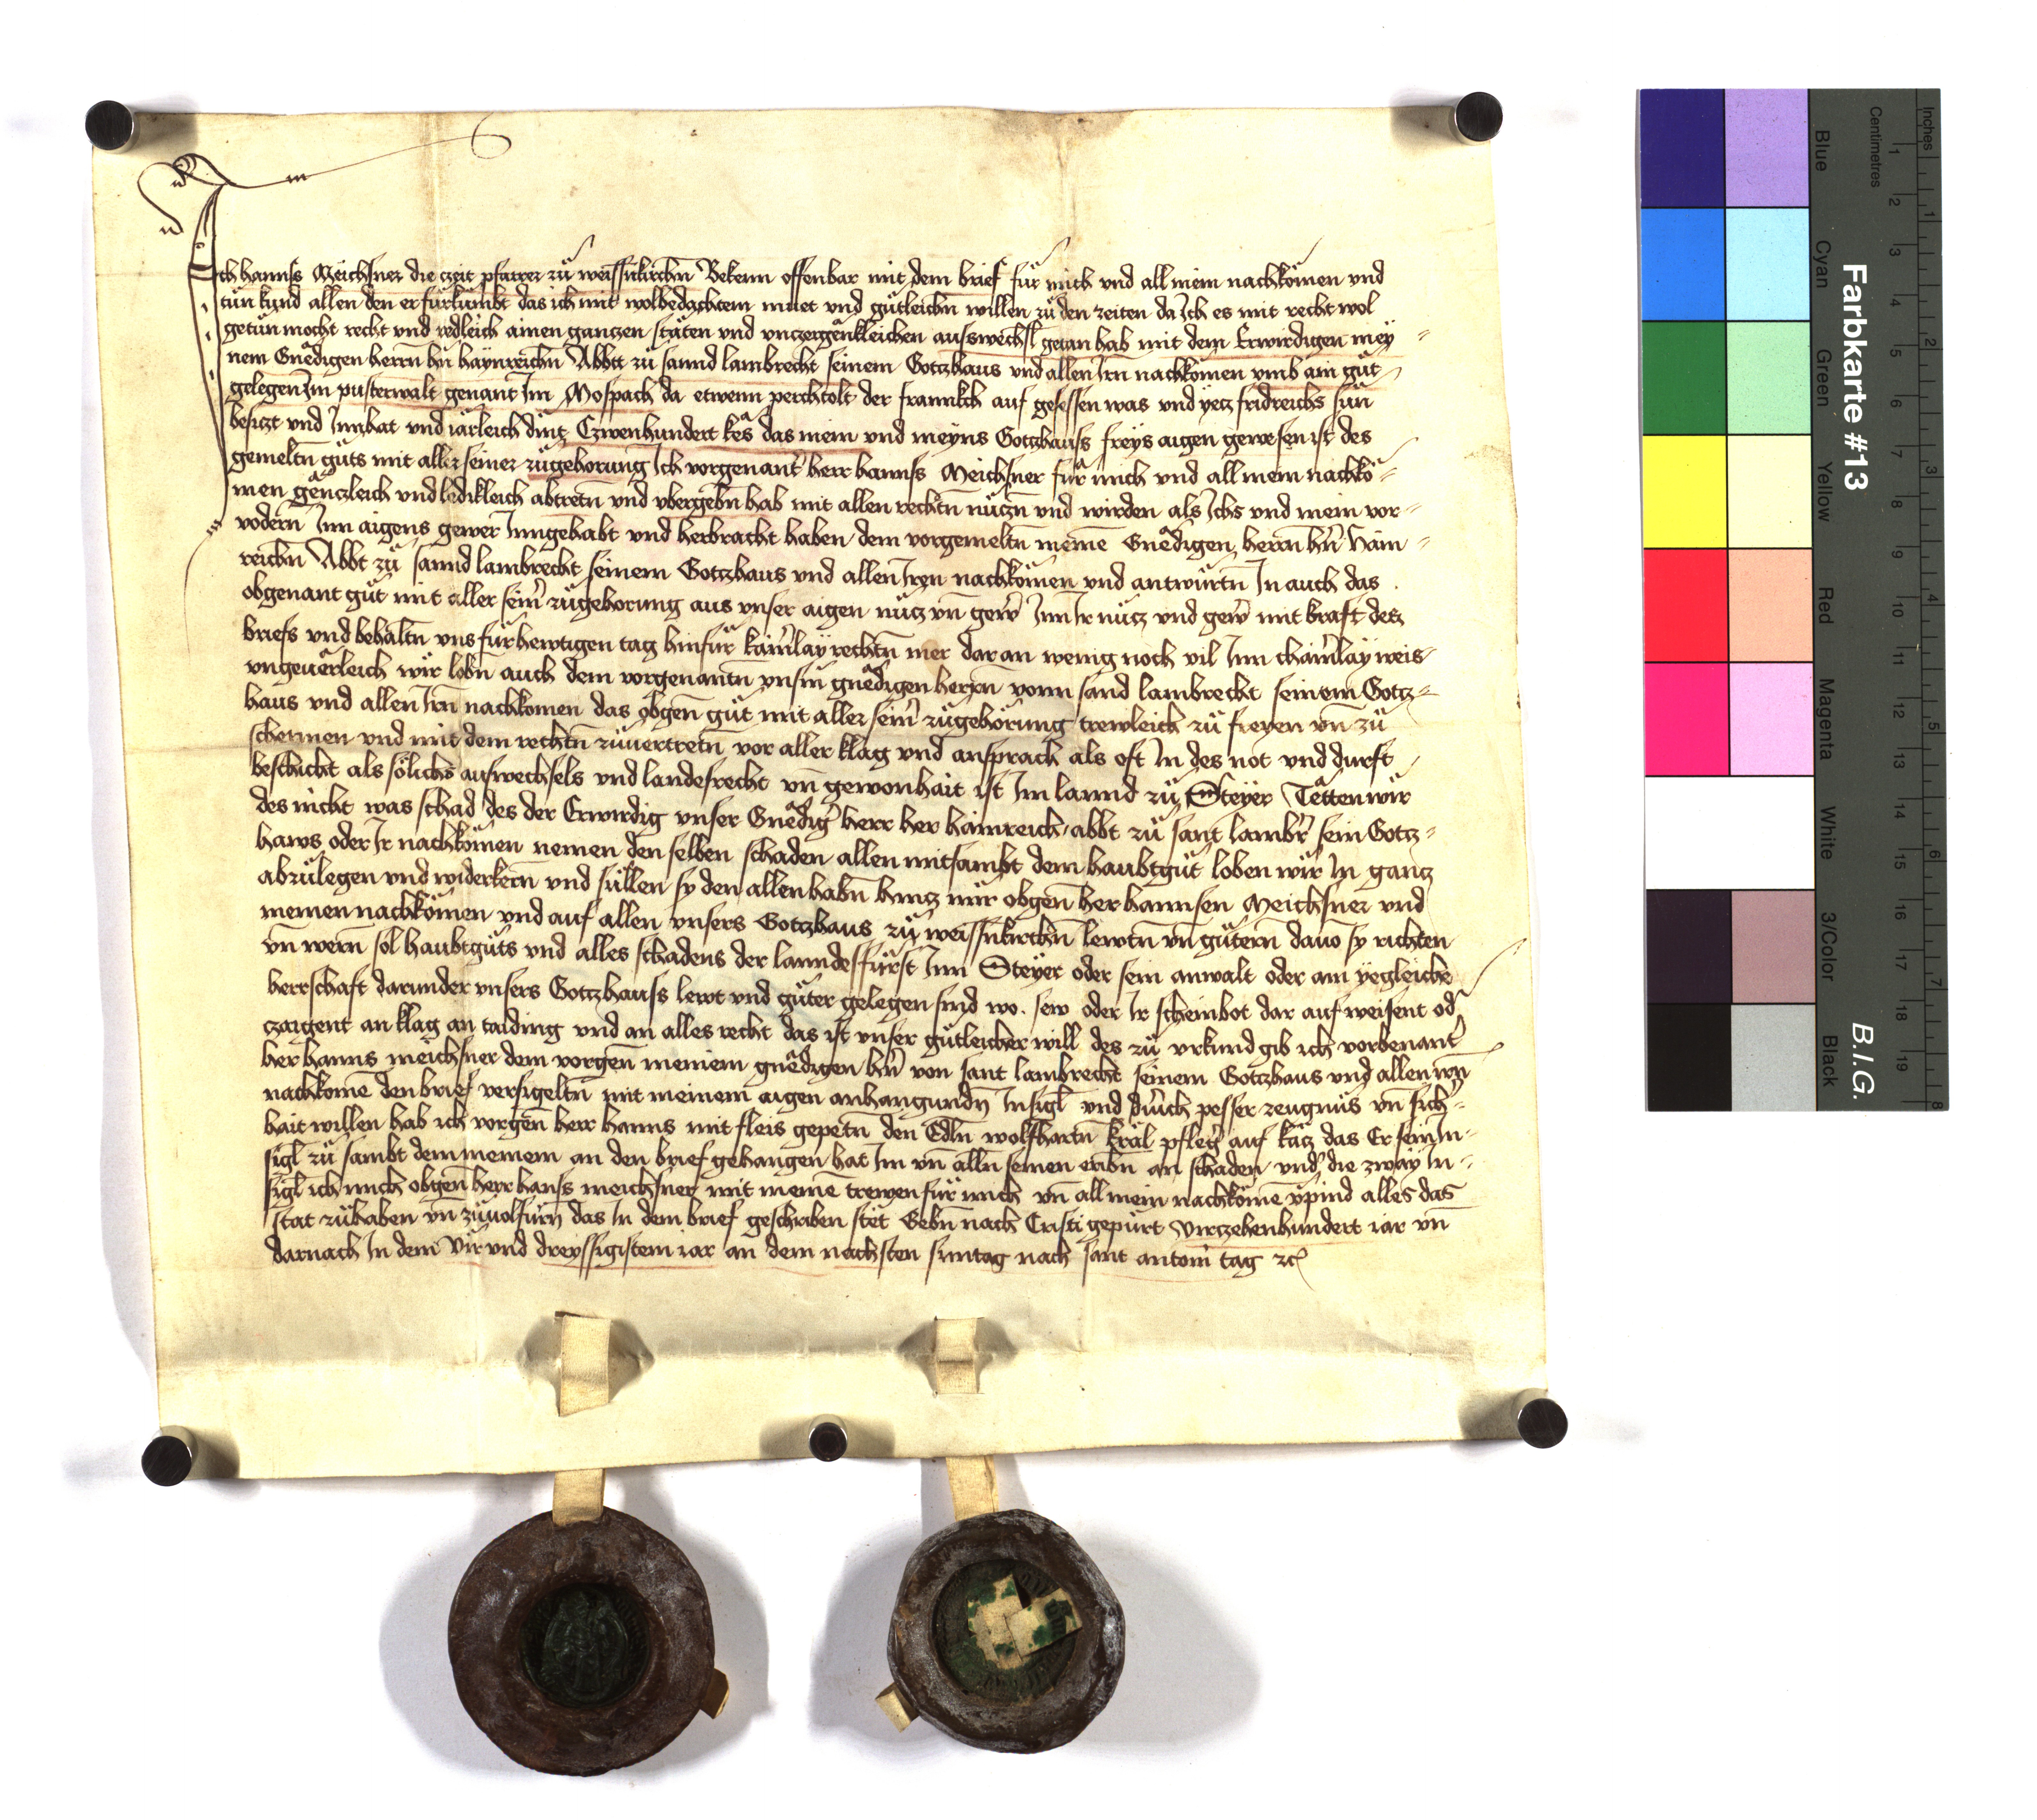 Ich hanns Meichsner die czeit pfarrer zu weissnkirchn Bekenn offenbar mit dem brief für mich und all mein nachkömen und
tün kund allen den er fürkümbt das ich mit wolbedachtem muet und gütleichn willen zu den zeiten da Ich es mit recht wol
getün mocht recht und redleich ainen ganczen stäten und vnczergänkleichen ausswechsl getan hab mit dem Erwirdigen mey=
nem Gnedigen herrn hn haynreichn Abbt zu sannd lambrecht seinem Gotzhaus und allen Irn nachkömen umb ain güt
gelegen Im pusterwalt genant Im Mospach da etwenn perchtolt der frannkch auf gesessen was und yecz fridreichs sün
besiczt und Innhat und iärleich dint Czwenhundert kes das mein und meyns Gotzhauss freys aigen gewesen ist des
gemeltn guts mit aller seiner zugehorung Ich vorgenant herr hanns Meichsner für mich und all mein nachkö=
men gänczleich und ledikleich abtretn und vbergebn hab mit allen rechtn nuczn und wirden als Ichs und mein vor=
vodern Inn aigens gewer Inngehabt und herbracht haben dem vorgemeltn meine Gnedigen herrn hn Hain=
reichn Abbt zu sannd lambrecht seinem Gotzhaus und allen Iren nachkömen und antwürtn In auch das
obgenant güt mit aller sein zugehorung aus vnser aigen nucz vn gew Inn Ir nucz und gew mit kraft des
briefs und behaltn uns für hewtigen tag hinfür kainlay rechtn mer dar an wenig noch vil Inn chainlay weis
vngeuerleich wir lobn auch dem vorgenantn vnsm gnedigen herrn vonn sand lambrecht seinem Gotz=
haus und allen Irn nachkomen das obgen güt mit aller sein zugehörung trewleich zu freyen vn zu
schermen und mit dem rechtn zuuertretn vor aller klag und ansprach als oft In des not und durft
beschicht als sölichs auswechsels und landesrecht vn gewonhait ist Im lannd zu Steyer Tätten wir
des nicht was schad des der Erwirdig unser Gnedig herr her hainreich abbt zu sant lambr sein Gotz=
haws oder Ir nachkömen nemen den selben schaden allen mitsambt dem haubtgüt loben wir In gancz
abzulegen und widerkern und süllen sy den allen habn hincz mir obgen her hannsen Meichsner und
meinen nachkömen und auf allen vnsers Gotzhaus zu weissnkirchn lewtn vn gütern dauo sy richten
vn wern sol haubtguts und alles schadens der lanndesfürst Inn Steyer oder sein anwalt oder ain yegleiche
herrschaft darunder vnsers Gotzhauss lewt und güter gelegen sind wo sew oder Ir scheinbot dar auf weisent od
czaigent an klag an taiding und an alles recht das ist vnser gütleicher will des zu vrkund gib ich vorbenant
her hanns meichsner dem vorgen meinem gnedigen hn von sant lambrecht seinem Gotzhaus und allen irn
nachkome den brief versigeltn mit meinem aigen anhangundn Insigl und durich pesser zeugnus vn sich=
hait willen hab ich vorgen herr hanns mit fleis gepetn den Edln wolfhartn kräl pfleg auf käcz das Er sein In=
sigl zu sambt dem meinem an den brief gehangen hat Im vn alln seinen eribn an schaden und die zway In=
sigl ich mich obgen herr hanss meichsner mit meine trewen für mich vn all mein nachköme vpind alles das
stät zuhaben vn zuuolfürn das In dem brief geschriben stet Gebn nach Cristi gepürt Virczehenhundert iar vn
darnach In dem Vir und dreyssigistem iar an dem nachsten suntag nach sant antoni tag etc
Farbkarte #13
B.I.G.
Inches
Centimetres
1 2 3 4 5 6 7 8
1 2 3 4 5 6 7 8 9 10 11 12 13 14 15 16 17 18 19
Blue
Cyan
Green
Yellow
Red
Magenta
White
3/Color
Black